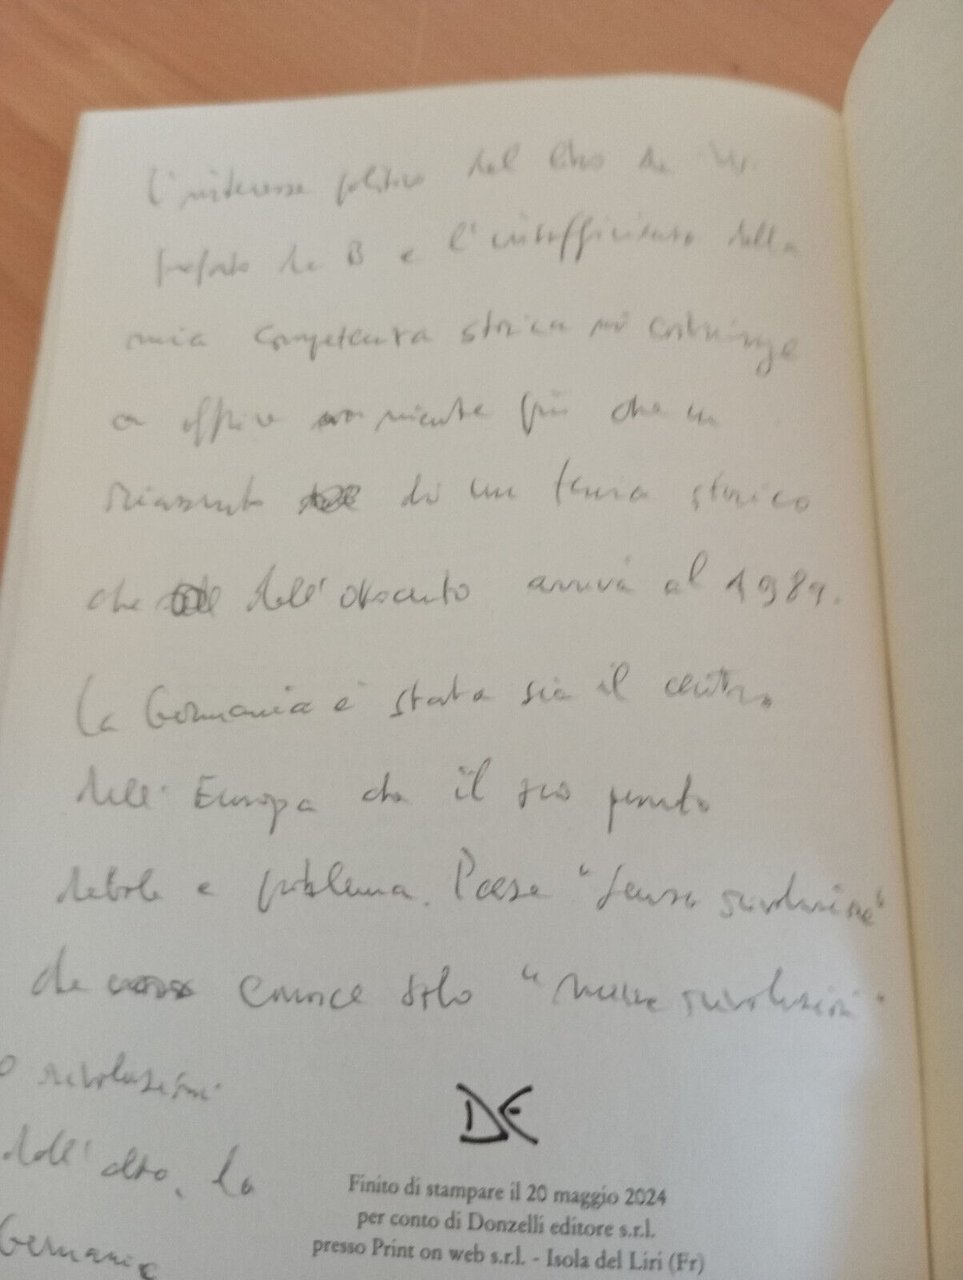 L'interesse politico del libro di
di B e l'insufficienza della
mia competenza storica mi costringe
a offrire niente più che un
riassunto di un tema storico
che dell'Ottocento arriva al 1989.
La Germania è stata sia il centro
dell'Europa che il suo punto
debole e problema. Paese "senza rivoluzione"
che conosce solo rivoluzioni"
o rivoluzioni
dall'alto, la
Germania
DE
Finito di stampare il 20 maggio 2024
per conto di Donzelli editore s.r.l.
presso Print on web s.r.l. - Isola del Liri (Fr)